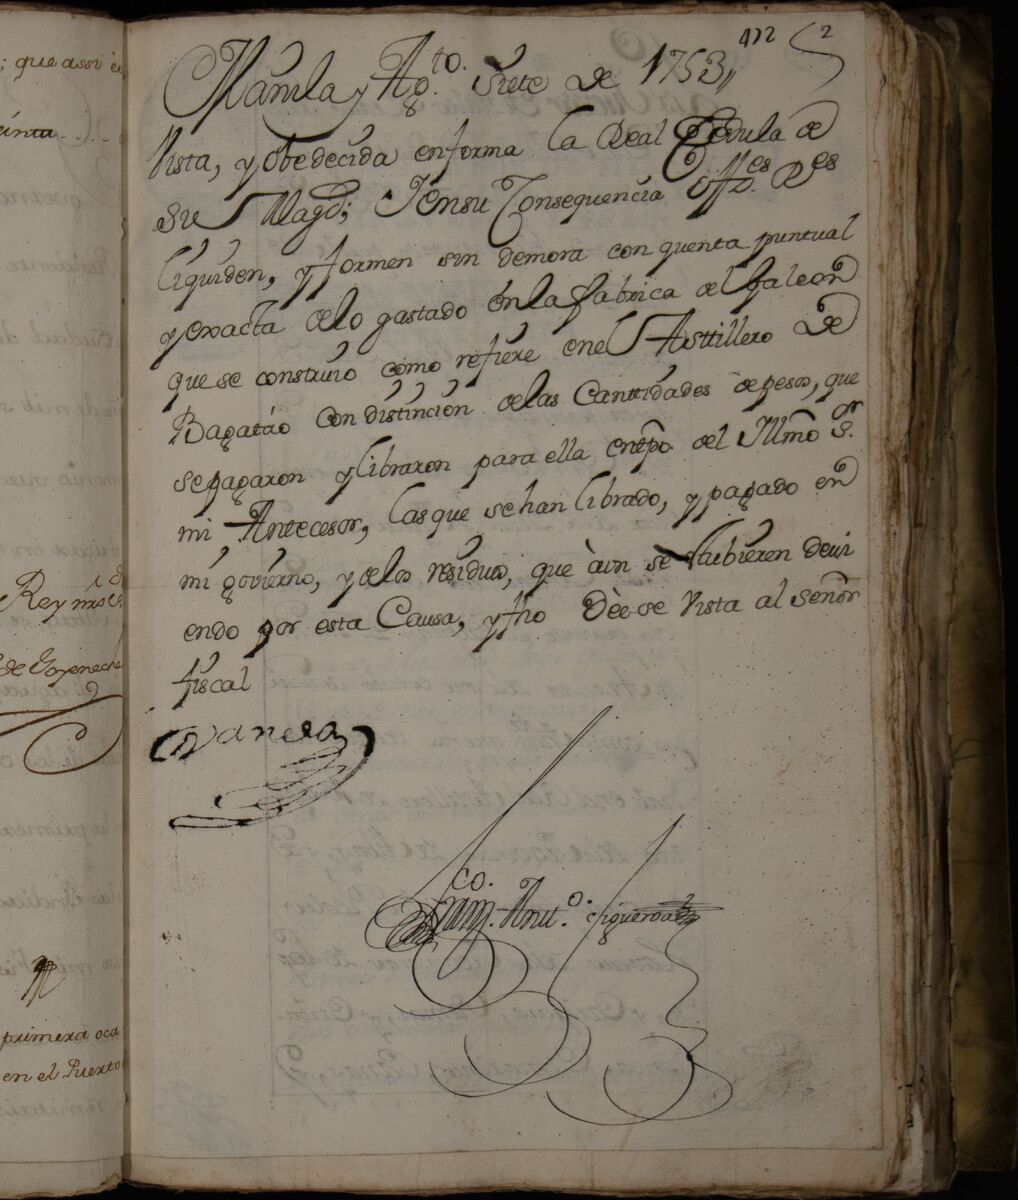 ; que assi
412 2
Manila y Ag.to Siete de 1753,,
Vista, y obedecida enforma la Real Cedula de
Su Magd; Y ensu Consequencia Off.es R.es
liquiden, y formen sin demora con quenta puntual
y exacta delo gastado énla fabrica del galeon
que se construio como refiere enel Asttillero de
Bagatáo Con distincion delas Cantidades de pesos, que
se pagaron y libraron para ella entpo. del Illmo S.or
mi Antecesor, las que se han librado, y pagado en
mi govierno, y delos residuos, que àun se estubieren devi
endo por esta Causa, y fho Dèe se Vista al señor
fiscal
Ovandoa
Fran.co Anto. Figueroa
Rey nro
de Goyeneche
primera oca
en el Puerto